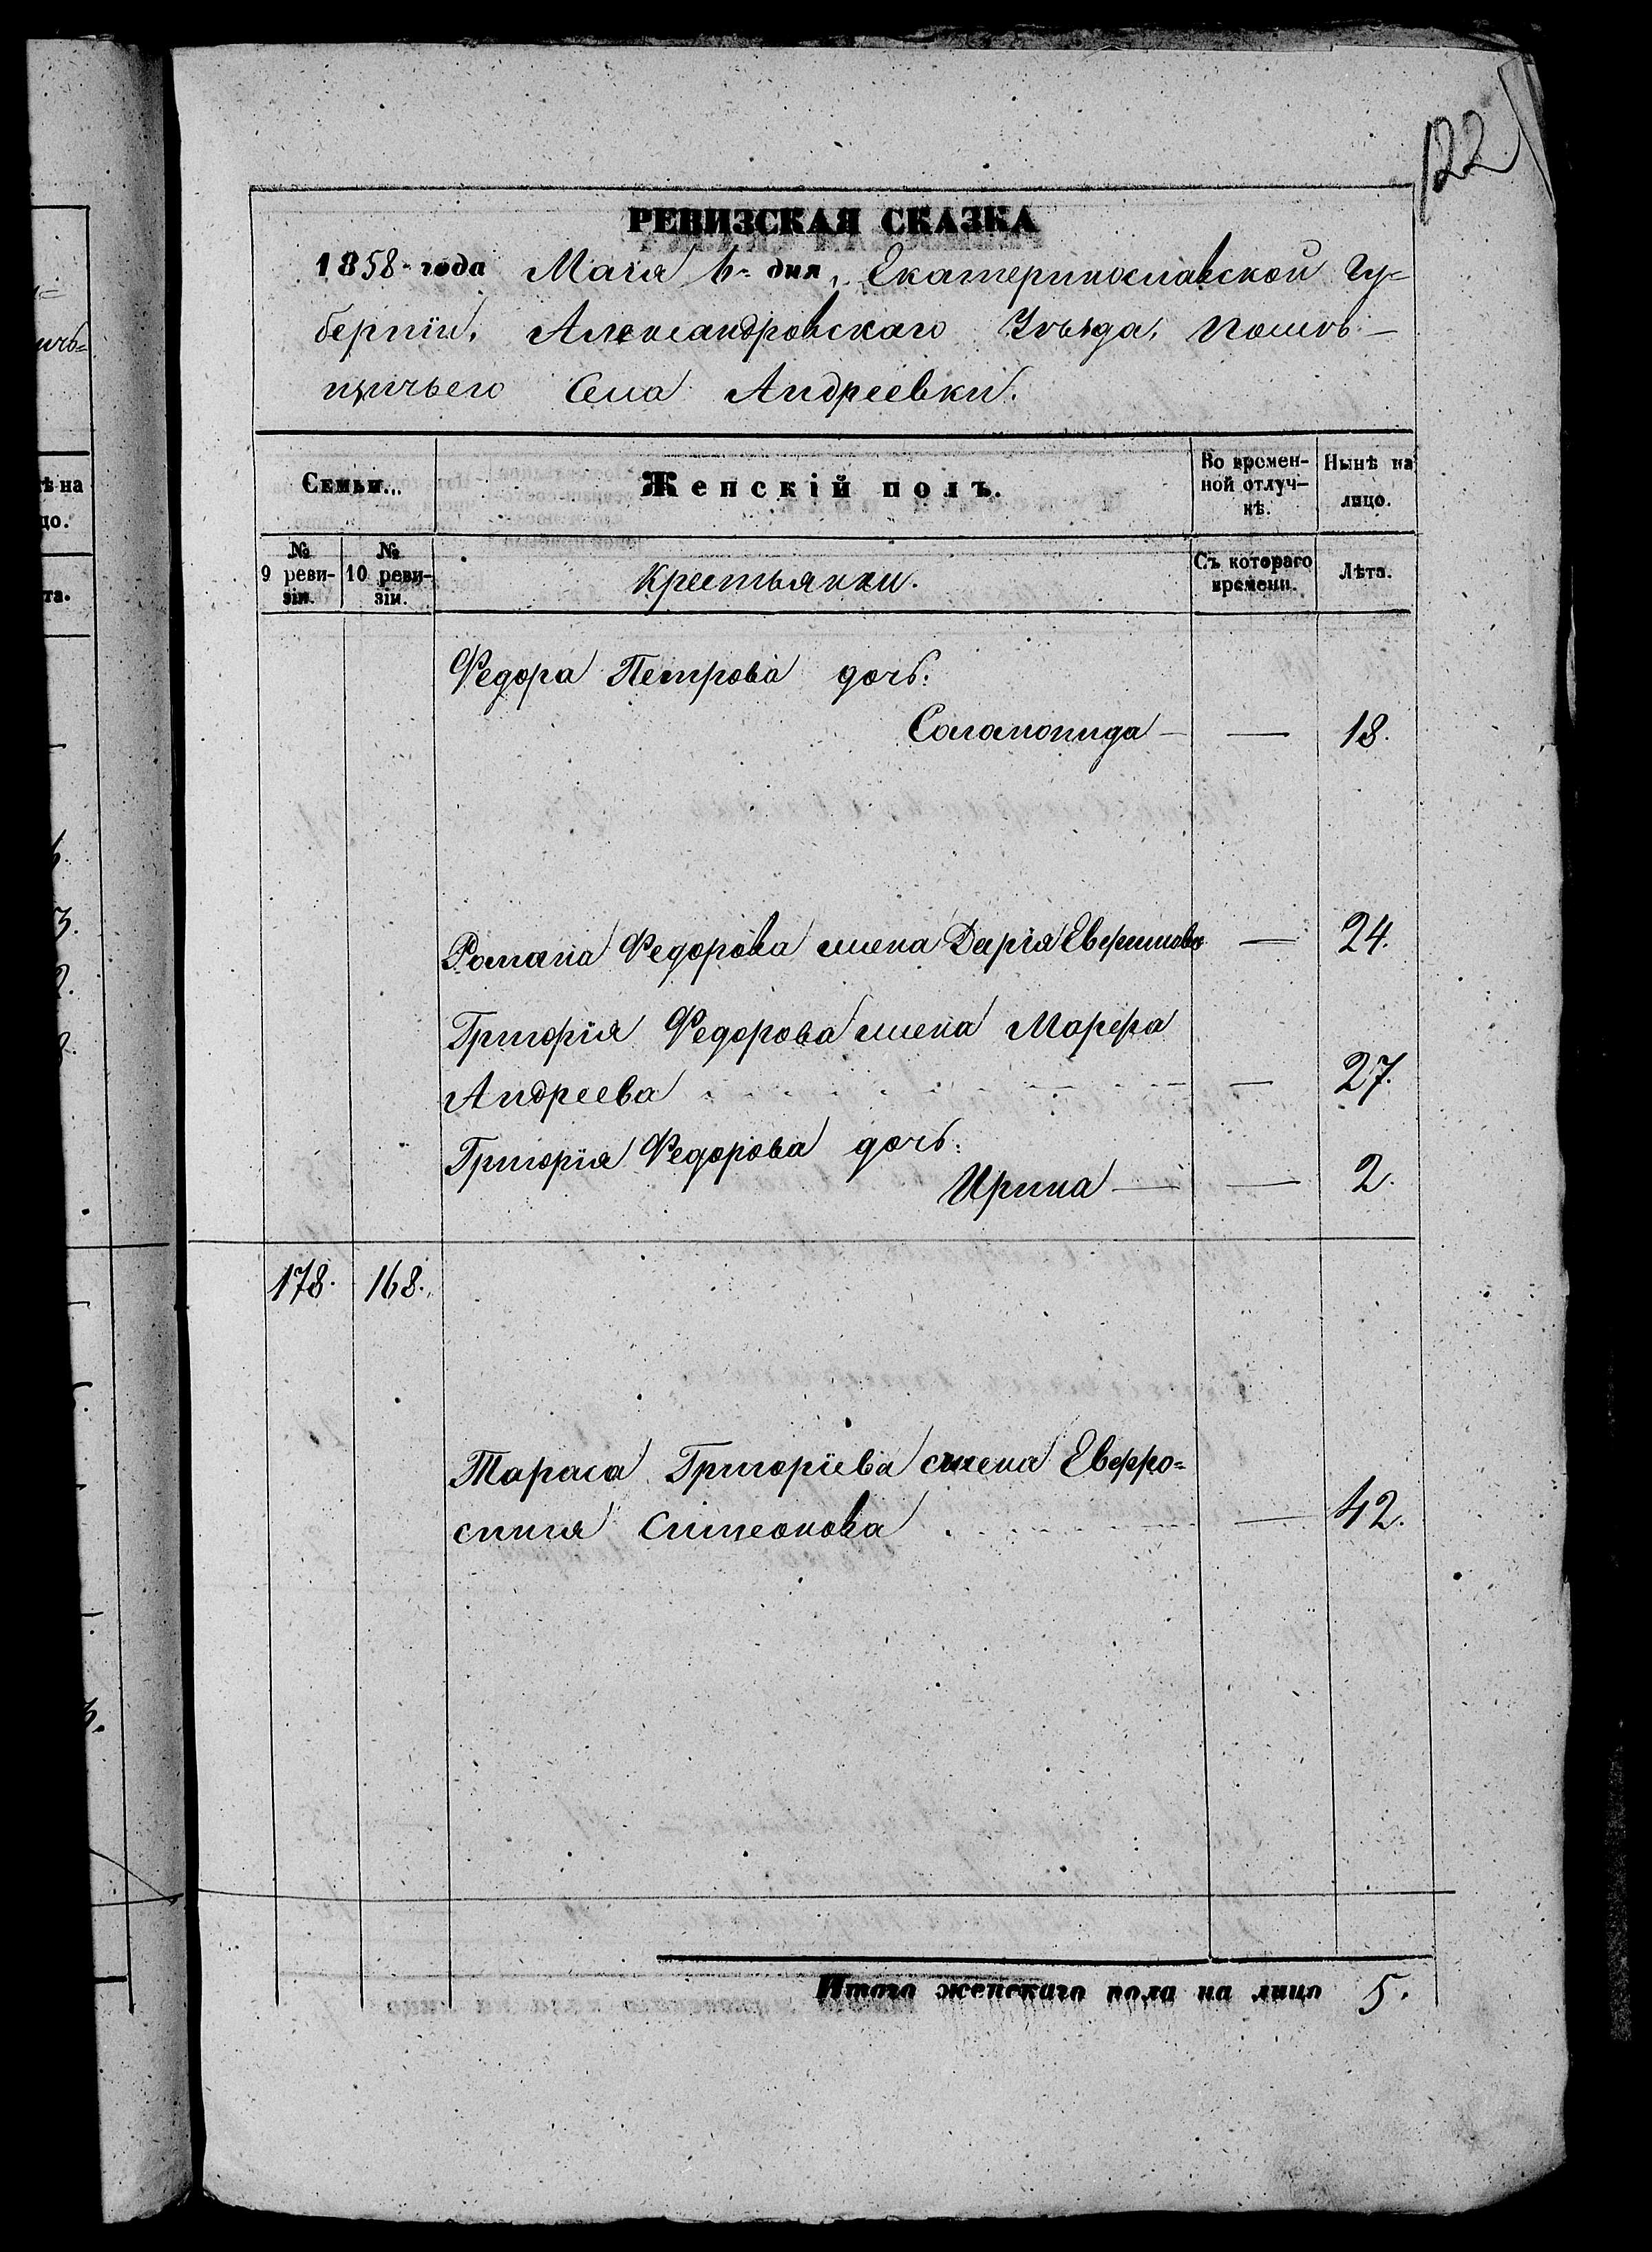 122
РЕВИЗСКАЯ СКАЗКА
1858 года Маія 6 дня, Екатеринославской Гу=
берніи, Александровскаго Уѣзда, Помѣ-
щичьего Села Андреевки.
Семьи...
Женскій полъ.
Во времен-
ной отлуч-
кѣ.
Нынѣ на
лицо.
№
9 реви-
зіи.
№
10 реви-
зіи.
Крестьянки.
Съ котораго
времени.
Лѣта.
Федора Петрова дочь:
Саламонида — — 18.
Романа Федорова жена Дарія — 24.
Григорія Федорова жена Марфа
Андреева — 27.
Григорія Федорова дочь:
Ирина — — 2.
178. 168.
Тараса Григоріева жена Евфро=
синия Симеонова — 42.
Итого женскаго пола на лицо 5.